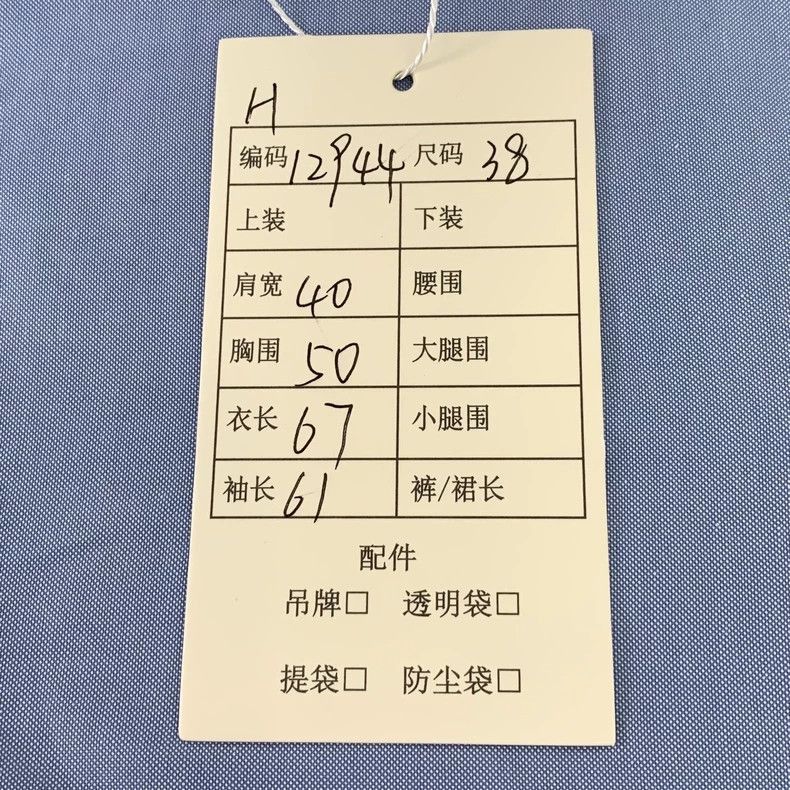 H
编码 12944 尺码 38
上装 下装
肩宽 40 腰围
胸围 50 大腿围
衣长 67 小腿围
袖长 61 裤/裙长
配件
吊牌□ 透明袋□
提袋□ 防尘袋□